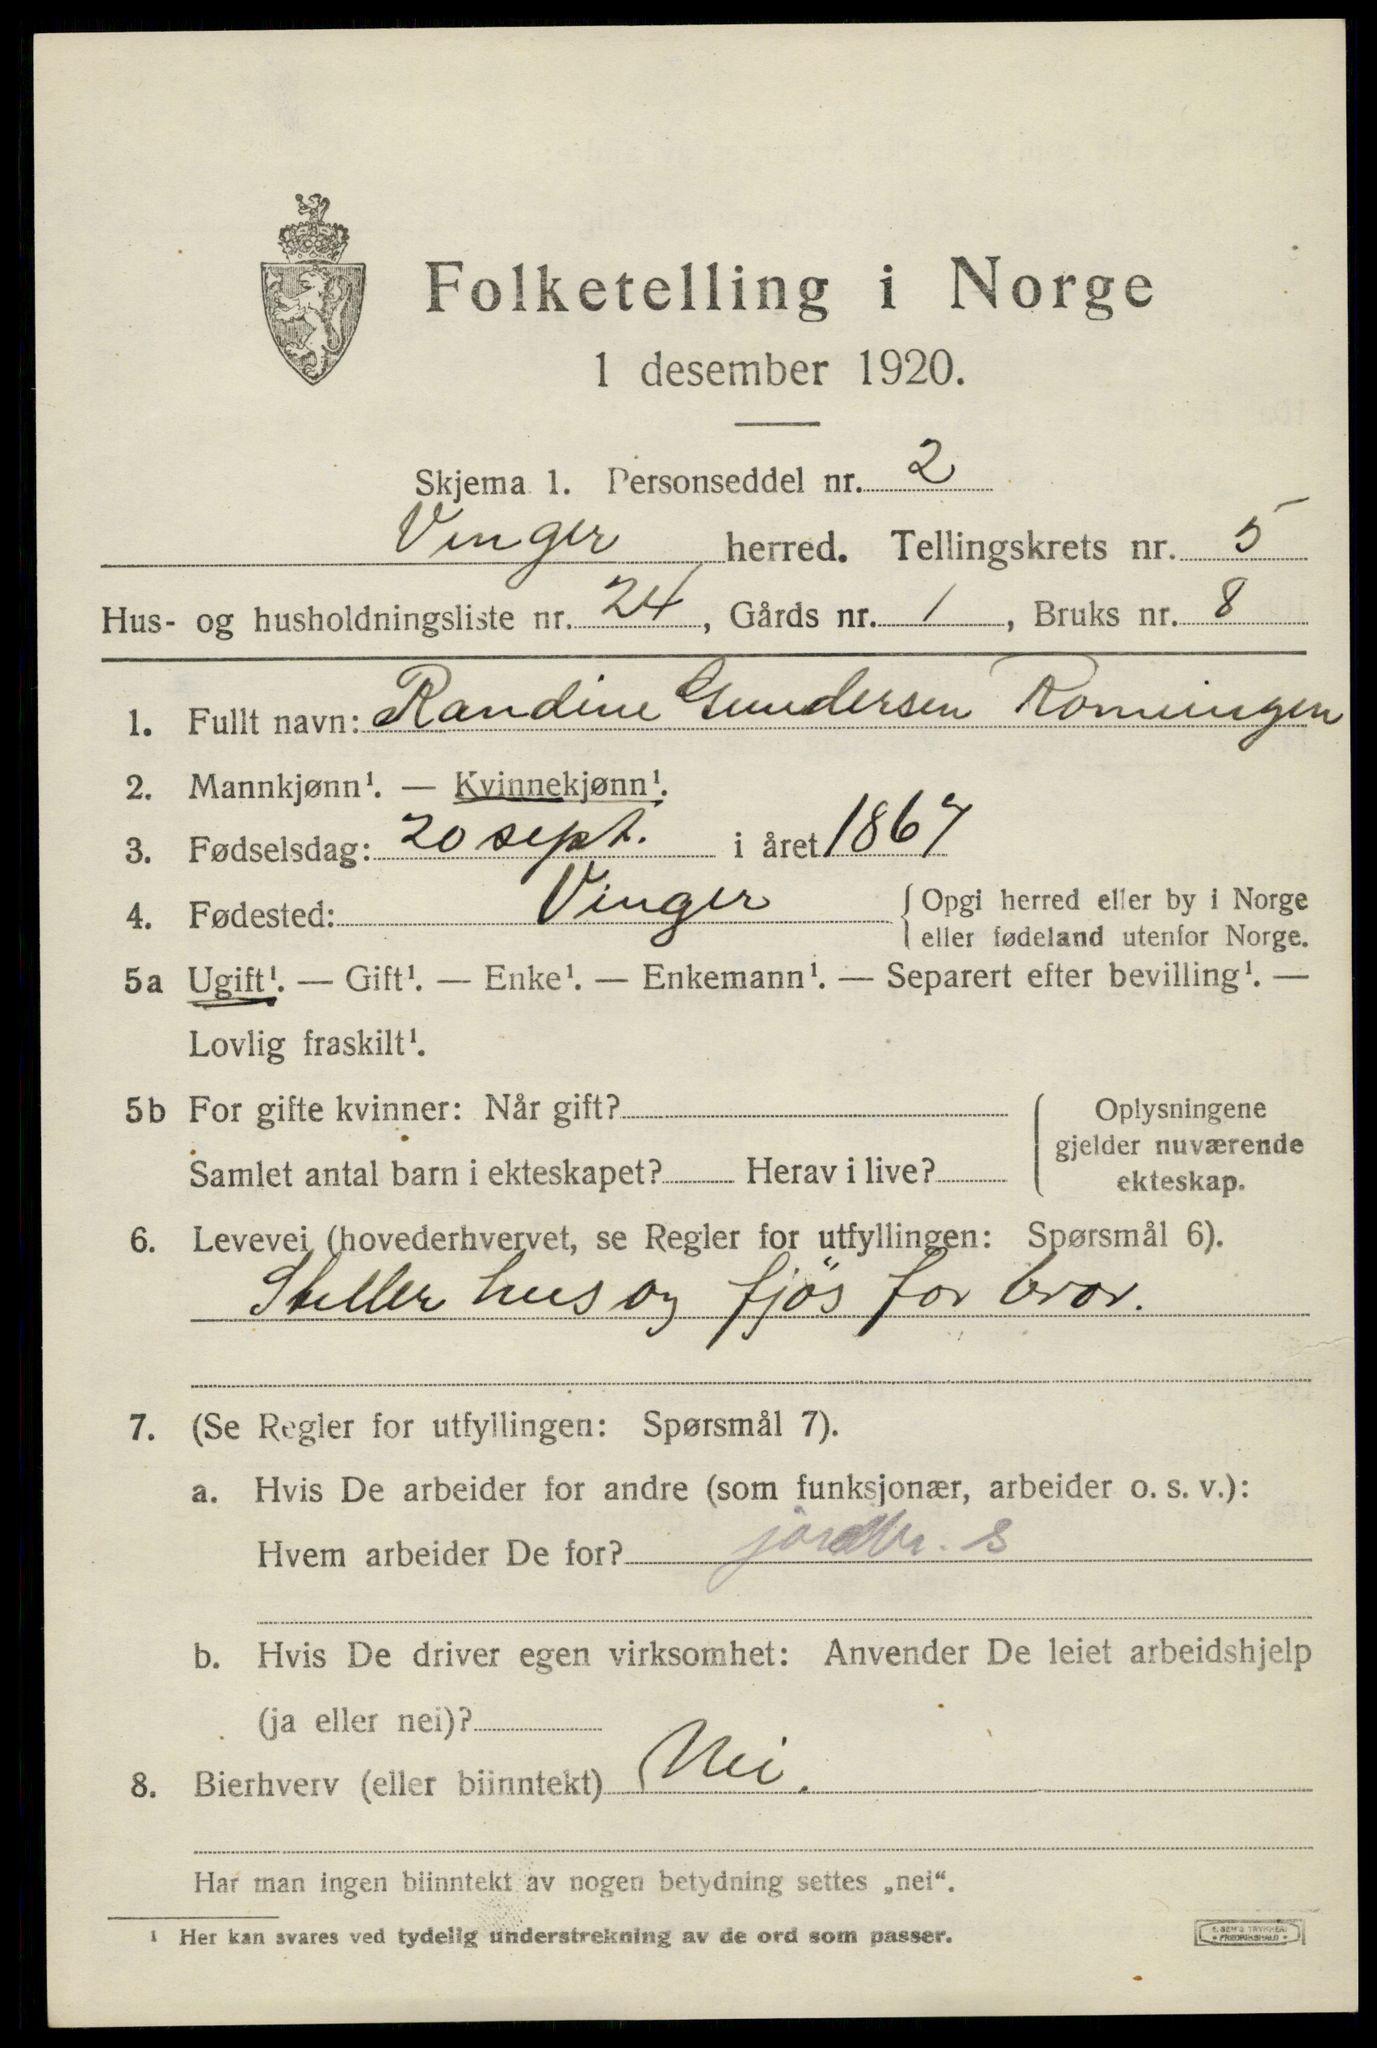 Folketelling i Norge
1 desember 1920.
Skjema 1. Personseddel nr. 2
Vinger herred. Tellingskrets nr. 5
Hus- og husholdningsliste nr. 24, Gårds nr. 1, Bruks nr. 8
1. Fullt navn: Randine Gundersen Romingen
2. Mannkjønn¹. — Kvinnekjønn¹.
3. Fødselsdag: 20 sept. i året 1867
4. Fødested: Vinger { Opgi herred eller by i Norge
eller fødeland utenfor Norge.
5a Ugift¹. — Gift¹. — Enke¹. — Enkemann¹. — Separert efter bevilling¹. —
Lovlig fraskilt¹.
5b For gifte kvinner: Når gift? Oplysningene
gjelder nuværende
Samlet antal barn i ekteskapet? Herav i live? ekteskap.
6. Levevei (hovederhvervet, se Regler for utfyllingen: Spørsmål 6).
Steller hus og fjös for bror.
7. (Se Regler for utfyllingen: Spørsmål 7).
a. Hvis De arbeider for andre (som funksjonær, arbeider o. s. v.):
Hvem arbeider De for? jordbr. s
b. Hvis De driver egen virksomhet: Anvender De leiet arbeidshjelp
(ja eller nei)?
8. Bierhverv (eller biinntekt) Nei.
Har man ingen biinntekt av nogen betydning settes „nei“.
¹ Her kan svares ved tydelig understrekning av de ord som passer.
E. SEM'S TRYKKERI
FREDRIKSHALD